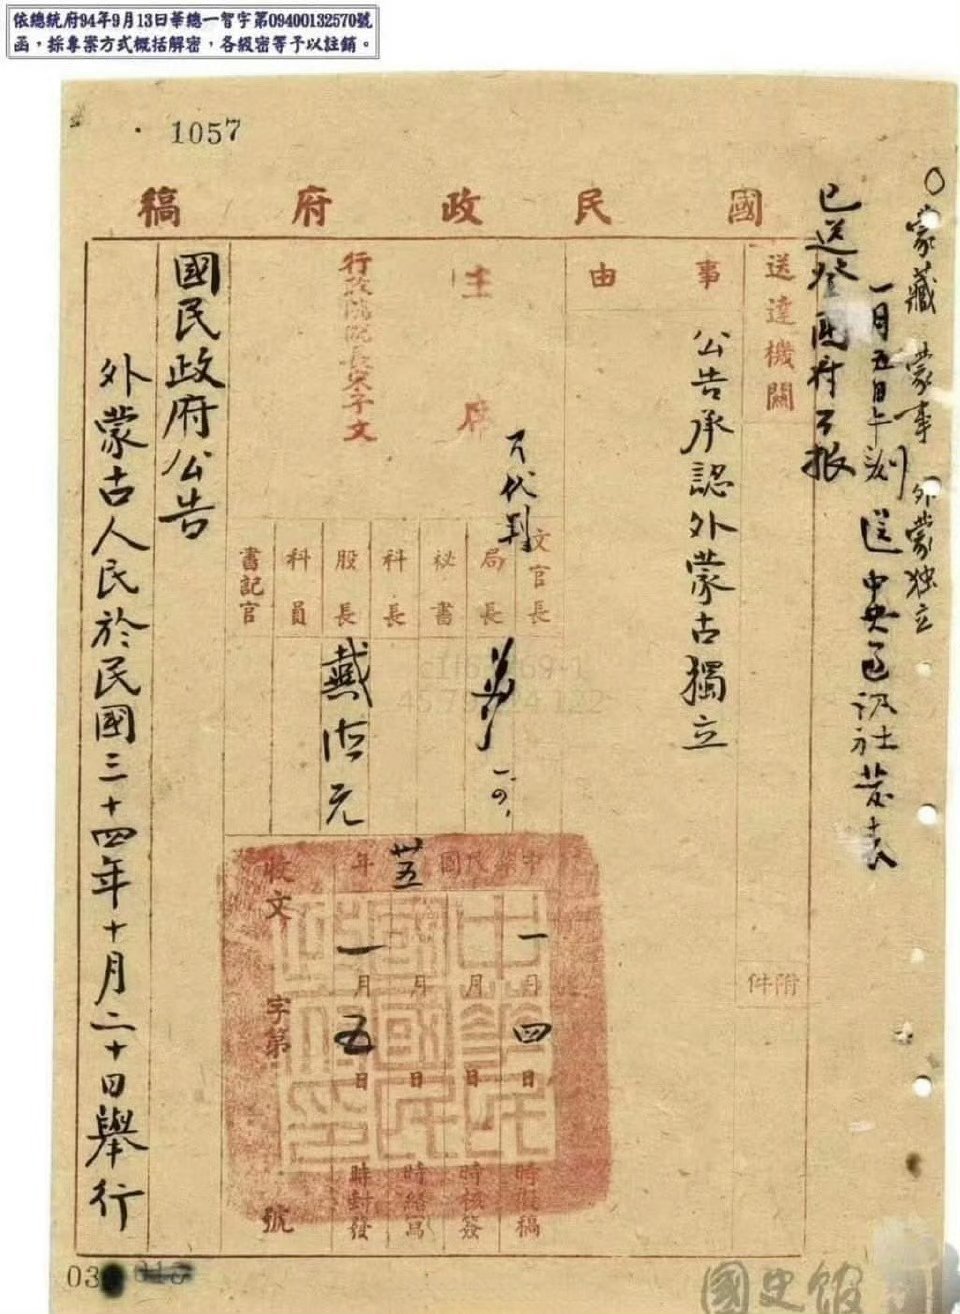 依總統府94年9月13日華總一智字第09400132570號
函，採專案方式概括解密，各級密等予以註銷。
1057
國民政府稿
蒙藏 蒙事 外蒙独立
一月五日午
中央通訊社發表
已送登國府公報
送達機關
附件
事由
公告承認外蒙古獨立
主席
行政院院長宋子文
代判
文官長
局長
秘書
科長
股長
科員
書記官
戴
中華民國卅五年
一月四日 時擬稿
月 日 時核簽
月 日 時繕寫
一月五日 時封發
收文 字第 號
國民政府公告
外蒙古人民於民國三十四年十月二十日舉行
03
國史館